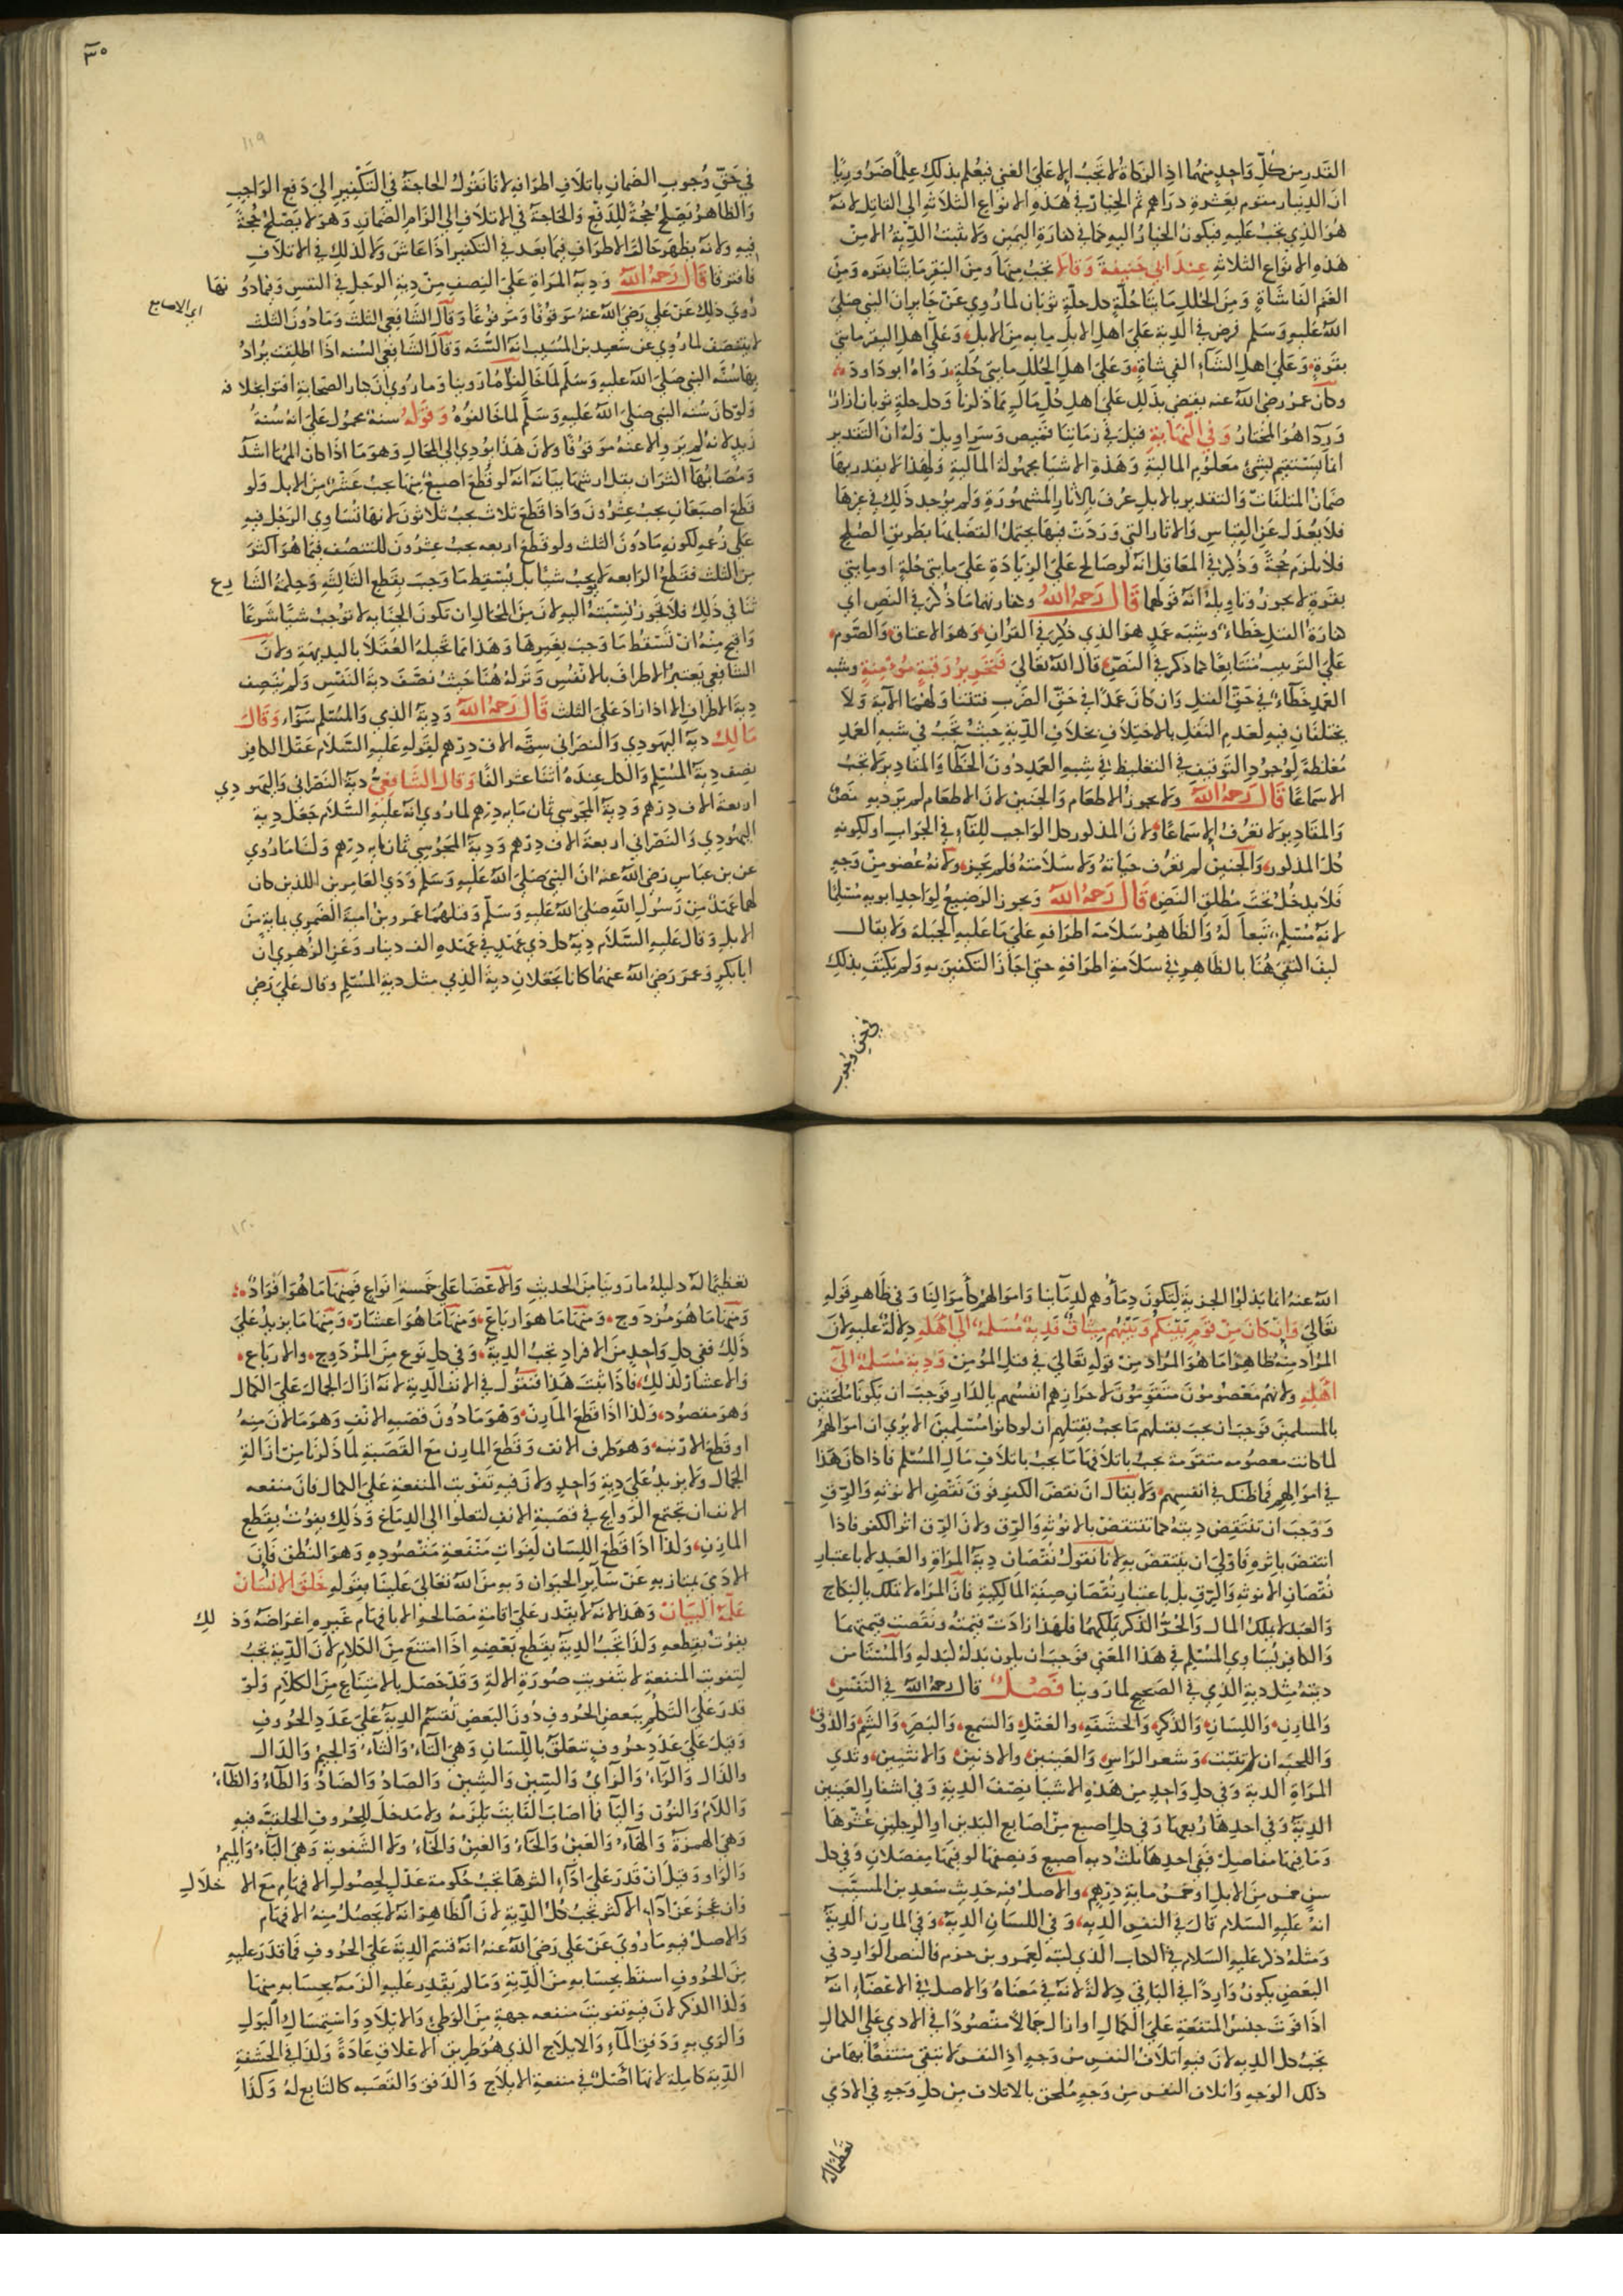 القدر من كل واحد منهما اذ الزكاة لا تجب الا على الغني فيعلم بذلك علما ضروريا
ان الدينار مقوم بعشرة دراهم ثم الخيار في هذه الانواع الثلاثة الى القاتل لانه
هو الذي يجب عليه فيكون الخيار اليه كما في كفارة اليمين ولا تثبت الدية الا من
هذه الانواع الثلاثة عند ابي حنيفة وقالا تجب منها ومن البقر مايتا بقره ومن
الغنم الفا شاة ومن الحلل مايتا حلة كل حلة ثوبان لما روي عن جابر ان النبي صلى
الله عليه وسلم فرض في الدية على اهل الابل مايه من الابل وعلى اهل البقر مايتي
بقرة وعلى اهل الشاء الفي شاة وعلى اهل الحلل مايتي حلة رواه ابو داود
وكان عمر رضي الله عنه يقضي بذلك على اهل كل مال كما ذكرنا وكل حلة ثوبان ازار
ورداء هو المختار وفي النهاية قيل في زماننا قميص وسراويل وله ان التقدير
انما يستقيم بشئ معلوم المالية وهذه الاشيا مجهولة المالية ولهذا لا يقدر بها
ضمان المتلفات والتقدير بالابل عرف بالاثار المشهورة ولم يوجد ذلك في غيرها
فلا يعدل عن القياس والاثار التي وردت فيها يحتمل القضا بها بطريق الصلح
فلا يلزم حجة وذكر في المعاقل انه لو صالح على الزيادة على مايتي حلة او مايتي
بقرة لا يجوز وتاويله انه قولهما قال رحمه الله وكفارتهما ما ذكر في النص اي
كفارة القتل خطاء وشبه عمد هو الذي ذكر في القران وهو الاعتاق والصوم
على الترتيب متتابعا كما ذكر في النص قال الله تعالى فتحرير رقبة مؤمنة وشبه
العمد خطاء في حق القتل وان كان عمدا في حق الضرب فتتناولهما الاية ولا
يختلفان فيه لعدم النقل بالاختلاف بخلاف الدية حيث تجب في شبه العمد
مغلظة لوجود التوقيف في التغليظ في شبه العمد دون الخطا والمقادير لا تجب
الا سماعا قال رحمه الله ولا يجوز الاطعام والجنين لان الاطعام لم يرد به نص
والمقادير لا تعرف الا سماعا ولان المذكور كل الواجب للفاء في الجواب او لكونه
كل المذكور والجنين لم تعرف حياته ولا سلامته فلم يجز ولانه عضو من وجه
فلا يدخل تحت مطلق النص قال رحمه الله ويجوز الرضيع لو احد ابويه مسلما
لانه مسلم تبعا له والظاهر سلامة اطرافه على ما عليه الجبلة ولا يقال
كيف اكتفي هنا بالظاهر في سلامة اطرافه حتى اجاز التكفير به ولم يكتف بذلك
في حق وجوب
٣٠
١١٩
في حق وجوب الضمان باتلاف اطرافه لانا نقول الحاجة في التكفير الى دفع الواجب
والظاهر يصلح حجة للدفع والحاجة في الاتلاف الى الزام الضمان وهو لا يصلح حجة
فيه ولانه يظهر حال الاطراف فيما بعد في التكفير اذا عاش ولا كذلك في الاتلاف
فافترقا قال رحمه الله ودية المراة على النصف من دية الرجل في النفس وفيما دونها
اي الاصابع
روي ذلك عن علي رضي الله عنه موقوفا ومرفوعا وقال الشافعي الثلث وما دون الثلث
لا يتنصف لما روي عن سعيد بن المسيب انه السنة وقال الشافعي السنه اذا اطلقت يراد
بها سنة النبي صلى الله عليه وسلم لما خالفوا ما روينا وما روي ان كبار الصحابة افتوا بخلافه
ولو كان سنه النبي صلى الله عليه وسلم لما خالفوه وقوله سنة محمول على انه سنة
زيد لانه لم يرو الا عنه موقوفا ولان هذا يؤدي الى المحال وهو ما اذا كان المها اشد
ومصابها اكثر ان يقل ارشها بيانه انه لو قطع اصبع منها يجب عشر من الابل ولو
قطع اصبعان يجب عشرون واذا قطع ثلاث يجب ثلاثون لانها تساوي الرجل فيه
على زعمه لكونه ما دون الثلث ولو قطع اربعه يجب عشرون للتنصف فيما هو اكثر
من الثلث فقطع الرابعه لا يوجب شيا بل يسقط ما وجب بقطع الثالثة وحكمة الشارع
تنافي ذلك فلا تجوز نسبته اليه لان من المحال ان تكون الجنايه لا توجب شيا شرعا
واقبح منه ان تسقط ما وجب بغيرها وهذا مما تحيله العقلا بالبديهة ولان
الشافعي يعتبر الاطراف بالانفس وتركه هنا حيث نصف دية النفس ولم ينصف
دية الاطراف الا اذا زاد على الثلث قال رحمه الله ودية الذمي والمسلم سواء وقال
مالك دية اليهودي والنصراني ستة الاف درهم لقوله عليه السلام عقل الكافر
نصف دية المسلم والكل عنده اثنا عشر الفا وقال الشافعي دية النصراني واليهودي
اربعة الاف درهم ودية المجوسي ثمان مايه درهم لما روي انه عليه السلام جعل دية
اليهودي والنصراني اربعة الاف درهم ودية المجوسي ثمان مايه درهم ولنا ما روي
عن بن عباس رضي الله عنه ان النبي صلى الله عليه وسلم ودي العامريين اللذين كان
لهما عهد من رسول الله صلى الله عليه وسلم وقتلهما عمرو بن امية الضمري بماية من
الابل وقال عليه السلام دية كل ذي عهد في عهده الف دينار وعن الزهري ان
ابا بكر وعمر رضي الله عنهما كانا يجعلان دية الذمي مثل دية المسلم وقال علي رضي
الله عنه انما بذلوا الجزية لتكون دماؤهم كدمآينا واموالهم كأموالنا وفي ظاهر قوله
تعالى وان كان من قوم بينكم وبينهم ميثاق فدية مسلمة الى اهله دلالة عليه لان
المراد منه ظاهرا ما هو المراد من قوله تعالى في قتل المؤمن ودية مسلمة الى
اهله ولانهم معصومون متقومون لاحرازهم انفسهم بالدار فوجب ان يكونوا ملحقين
بالمسلمين فوجب ان يجب بقتلهم ما يجب بقتلهم ان لو كانوا مسلمين الا يرى ان اموالهم
لما كانت معصومه متقومة يجب باتلافها ما يجب باتلاف مال المسلم فاذا كان هذا
في اموالهم فما ظنك في انفسهم ولا يقال ان نقص الكفر فوق نقص الانوثه والرق
ووجب ان تنتقص ديته كما تنتقص بالانوثه والرق ولان الرق اثر الكفر فاذا
انتقص باثره فاولى ان ينتقص به لانا نقول نقصان دية المراة والعبد لا باعتبار
نقصان الانوثه والرق بل باعتبار نقصان صفة المالكية فان المراه لا تملك بالنكاح
والعبد لا يملك المال والحر الذكر يملكهما فلهذا زادت قيمته ونقصت قيمتهما
والكافر يساوي المسلم في هذا المعنى فوجب ان يكون بدله كبدله والمستامن
ديته مثل دية الذمي في الصحيح لما روينا فصل قال رحمه الله في النفس
والمارن واللسان والذكر والحشفة والعقل والسمع والبصر والشم والذوق
واللحية ان لم تنبت وشعر الراس والعينين والاذنين والانثيين وثدي
المراة الدية وفي كل واحد من هذه الاشيا نصف الدية وفي اشفار العينين
الدية وفي احدها ربعها وفي كل اصبع من اصابع اليدين او الرجلين عشرها
وما فيها مفاصل ففي احدها ثلث ديه اصبع ونصفها لو فيها مفصلان وفي كل
سن خمس من الابل او خمس ماية درهم والاصل فيه حديث سعيد بن المسيب
انه عليه السلام قال في النفس الدية وفي اللسان الدية وفي المارن الدية
ومثله ذكر عليه السلام في الكتاب الذي كتبه لعمرو بن حزم فالنص الوارد في
البعض يكون واردا في الباقي دلالة لانه في معناه والاصل في الاعضاء انه
اذا فوت جنس المنفعة على الكمال او ازال جمالا مقصودا في الادمي على الكمال
تجب كل الديه لان فيه اتلاف النفس من وجه اذ النفس لا تبقى منتفعا بها من
ذلك الوجه واتلاف النفس من وجه ملحق بالاتلاف من كل وجه في الادمي
تعظيما له
١٢٠
تعظيما له دليله ما روينا من الحديث والاعضا على خمسة انواع فمنها ما هو افراد
ومنها ما هو مزدوج ومنها ما هو ارباع ومنها ما هو اعشار ومنها ما يزيد على
ذلك ففي كل واحد من الافراد تجب الدية وفي كل نوع من المزدوج والارباع
والاعشار كذلك فاذا ثبت هذا فنقول في الانف الدية لانه ازال الجمال على الكمال
وهو مقصود وكذا اذا قطع المارن وهو ما دون قصبه الانف وهو ما لان منه
او قطع الارنبه وهو طرف الانف وقطع المارن مع القصبة لما ذكرنا من ازالة
الجمال ولا يزيد على دية واحد ولان فيه تفويت المنفعة على الكمال فان منفعه
الانف ان تجتمع الروايح في قصبة الانف لتعلوا الى الدماغ وذلك يفوت بقطع
المارن وكذا اذا قطع اللسان لفوات منفعة مقصوده وهو النطق فان
الادمي يمتاز به عن ساير الحيوان وبه من الله تعالى علينا بقوله خلق الانسان
علمه البيان وهذا لانه لا يقدر على اقامة مصالحه الا بافهام غيره اغراضه وذلك
يفوت بقطعه وكذا تجب الدية بقطع بعضه اذا امتنع من الكلام لان الدية تجب
لتفويت المنفعة لا بتفويت صورة الالة وقد حصل بالامتناع من الكلام ولو
قدر على التكلم ببعض الحروف دون البعض تقسم الدية على عدد الحروف
وقيل على عدد حروف تتعلق باللسان وهي التاء والثاء والجيم والدال
والذال والراء والزاي والسين والشين والصاد والضاد والطاء والظاء
واللام والنون واليا فما اصاب الفايت يلزمه ولا مدخل للحروف الحلقيه فيه
وهي الهمزة والهاء والعين والحاء والغين والخاء ولا الشفوية وهي الباء والميم
والواو وقيل ان قدر على اداء اكثرها تجب حكومة عدل لحصول الافهام مع الاختلال
وان عجز عن اداء الاكثر تجب كل الدية لان الظاهر انه لا يحصل منه الافهام
والاصل فيه ما روي عن علي رضي الله عنه انه قسم الدية على الحروف فما قدر عليه
من الحروف اسقط بحسابه من الدية وما لم يقدر عليه الزمه بحسابه منها
وكذا الذكر لان فيه تفويت منفعه جهة من الوطئ والايلاد واستمساك البول
والرمي به ودفق الماء والايلاج الذي هو طريق الاعلاق عادة وكذا في الحشفة
الدية كاملة لانها اصل في منفعة الايلاج والدفق والقصبه كالتابع له وكذا